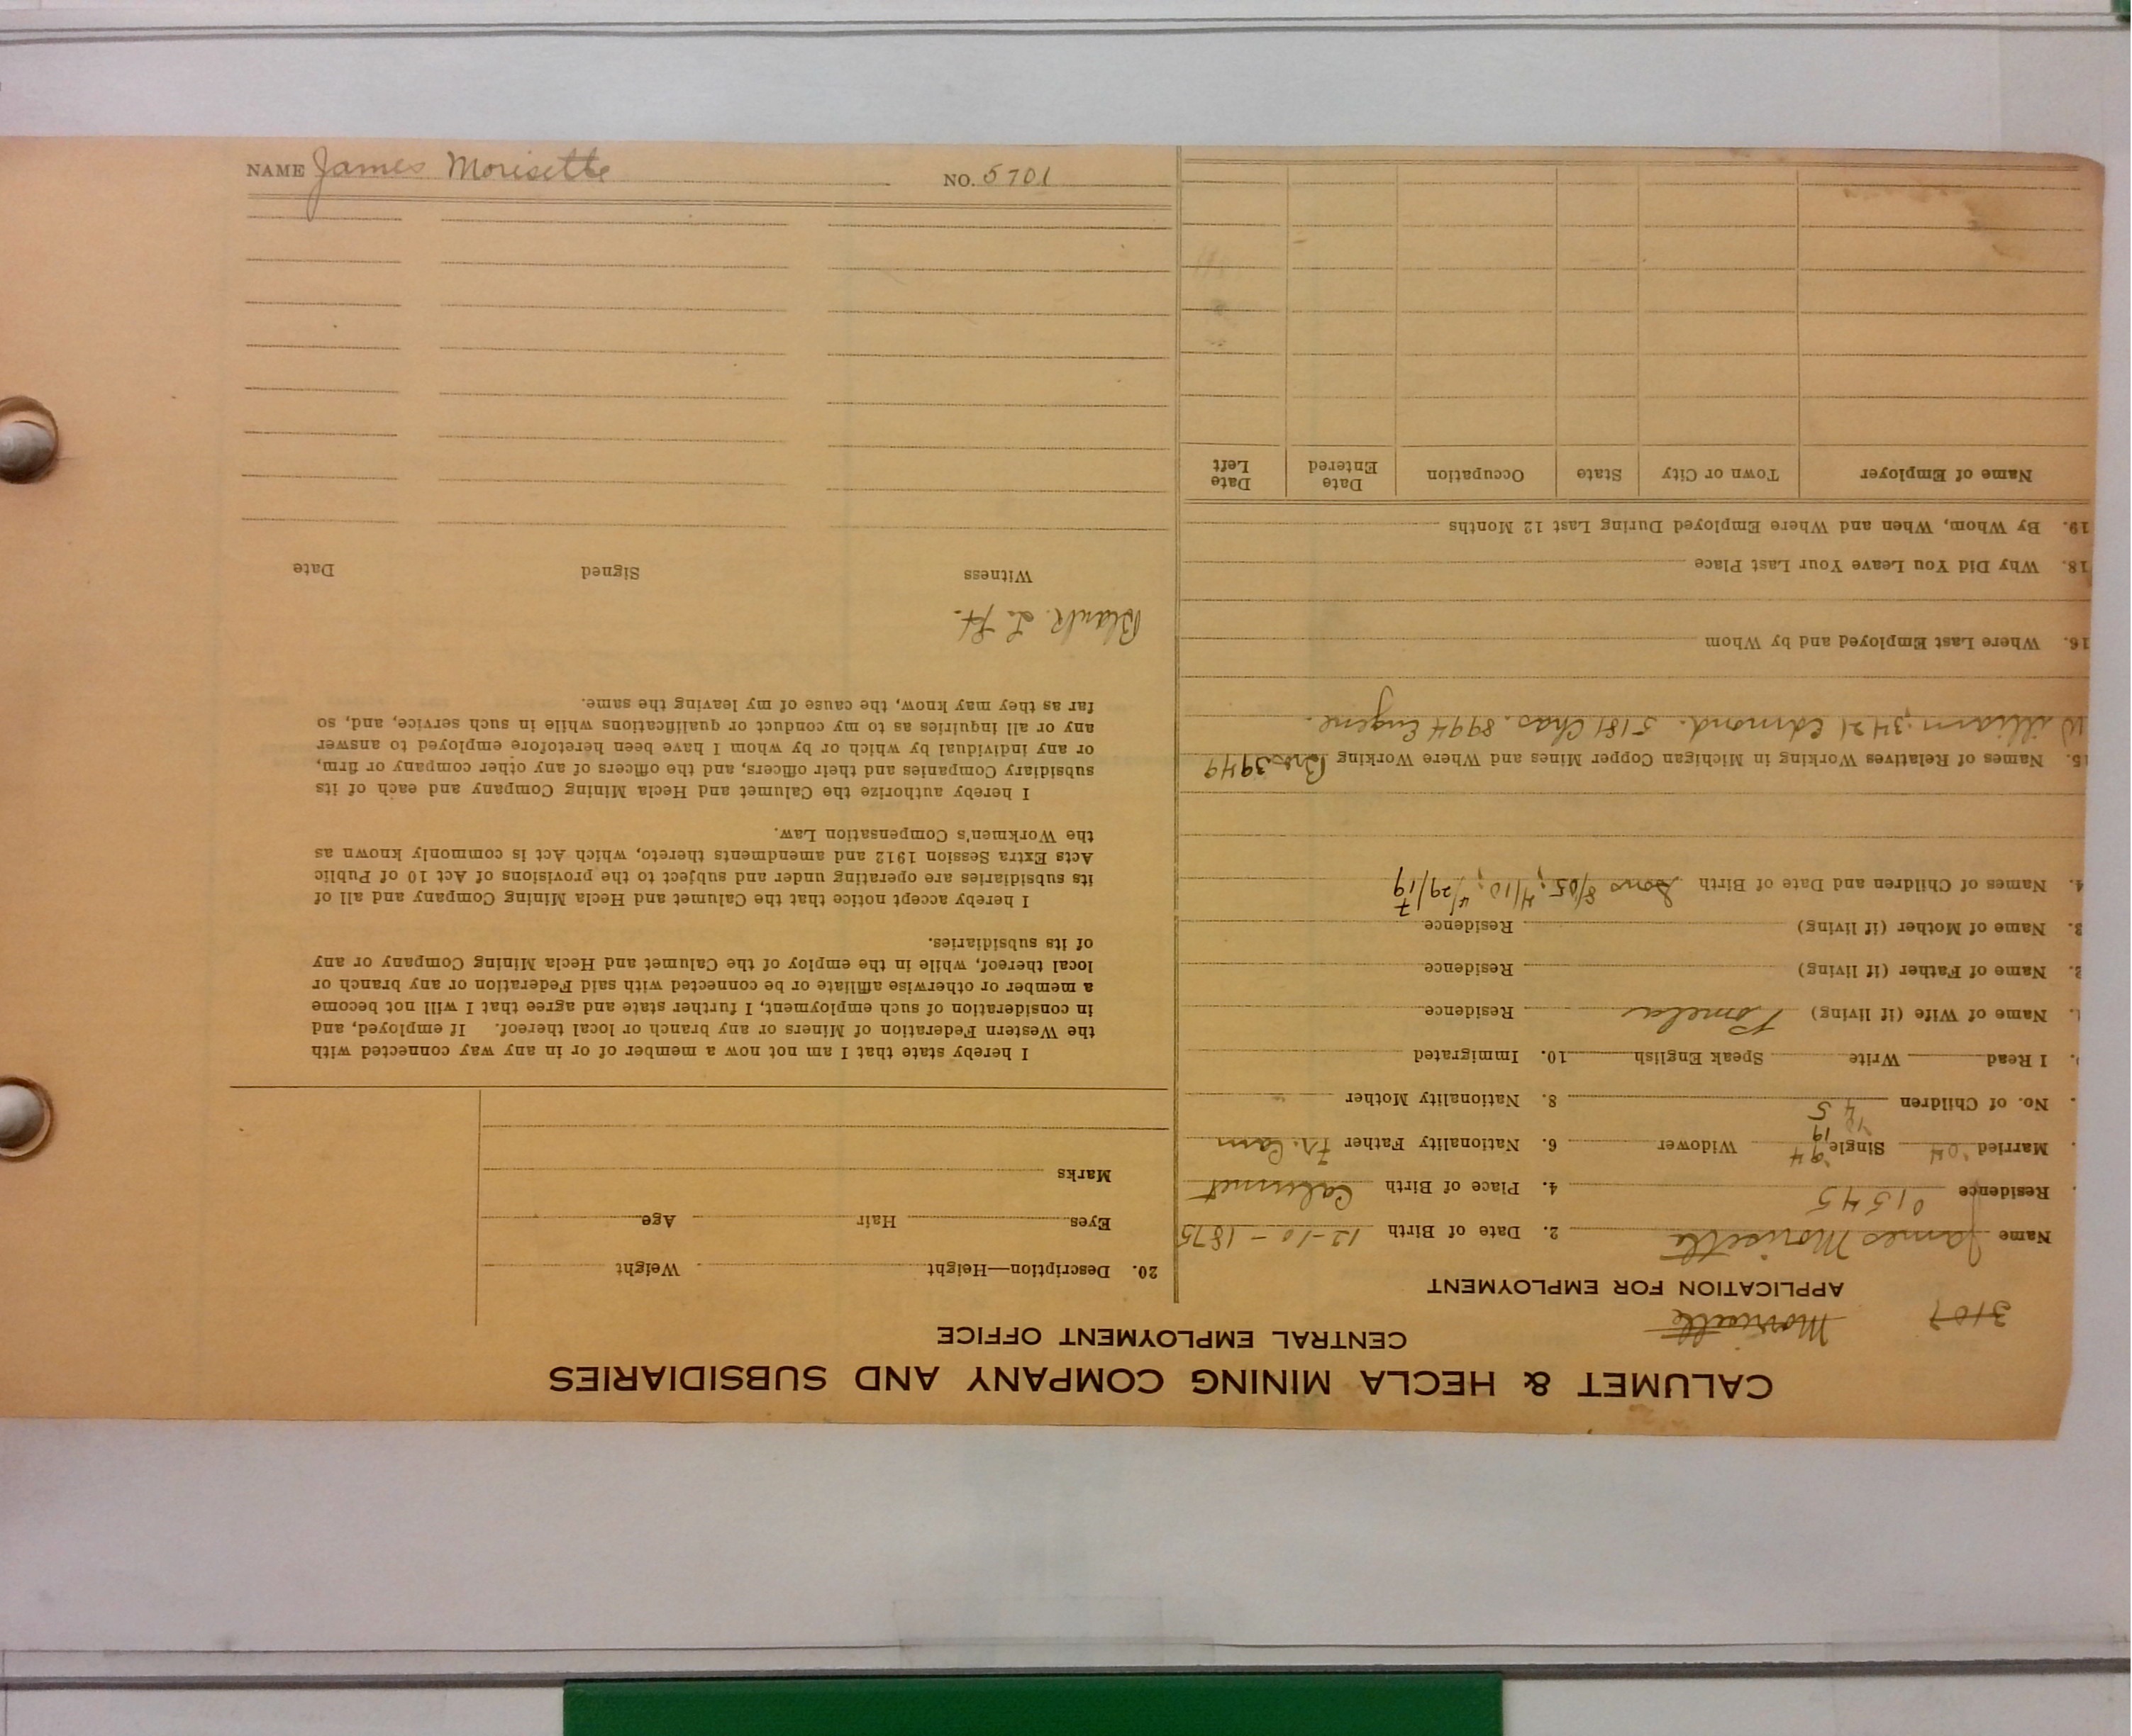 CALUMET & HECLA MINING COMPANY AND SUBSIDIARIES
CENTRAL EMPLOYMENT OFFICE
3107 Morisette
APPLICATION FOR EMPLOYMENT
Name James Morisette 2. Date of Birth 12-10-1875
Residence 01545 4. Place of Birth Calumet
Married '04 Single Widower 6. Nationality Father Fr. Can
No. of Children 4 5 8. Nationality Mother
I Read Write Speak English 10. Immigrated
Name of Wife (if living) Pomela Residence
2. Name of Father (if living) Residence
3. Name of Mother (if living) Residence
4. Names of Children and Date of Birth Sons 8/05; 4/10;
15. Names of Relatives Working in Michigan Copper Mines and Where Working Bro. 3949
William; 3421 Edmond. 5181 Chas. 8994 Eugene.
16. Where Last Employed and by Whom
18. Why Did You Leave Your Last Place
19. By Whom, When and Where Employed During Last 12 Months
Name of Employer Town or City State Occupation Date Entered Date Left
20. Description—Height Weight
Eyes Hair Age
Marks
I hereby state that I am not now a member of or in any way connected with
the Western Federation of Miners or any branch or local thereof. If employed, and
in consideration of such employment, I further state and agree that I will not become
a member or otherwise affiliate or be connected with said Federation or any branch or
local thereof, while in the employ of the Calumet and Hecla Mining Company or any
of its subsidiaries.
I hereby accept notice that the Calumet and Hecla Mining Company and all of
its subsidiaries are operating under and subject to the provisions of Act 10 of Public
Acts Extra Session 1912 and amendments thereto, which Act is commonly known as
the Workmen's Compensation Law.
I hereby authorize the Calumet and Hecla Mining Company and each of its
subsidiary Companies and their officers, and the officers of any other company or firm,
or any individual by which or by whom I have been heretofore employed to answer
any or all inquiries as to my conduct or qualifications while in such service, and, so
far as they may know, the cause of my leaving the same.
Witness Signed Date
NAME James Morisette NO. 5701